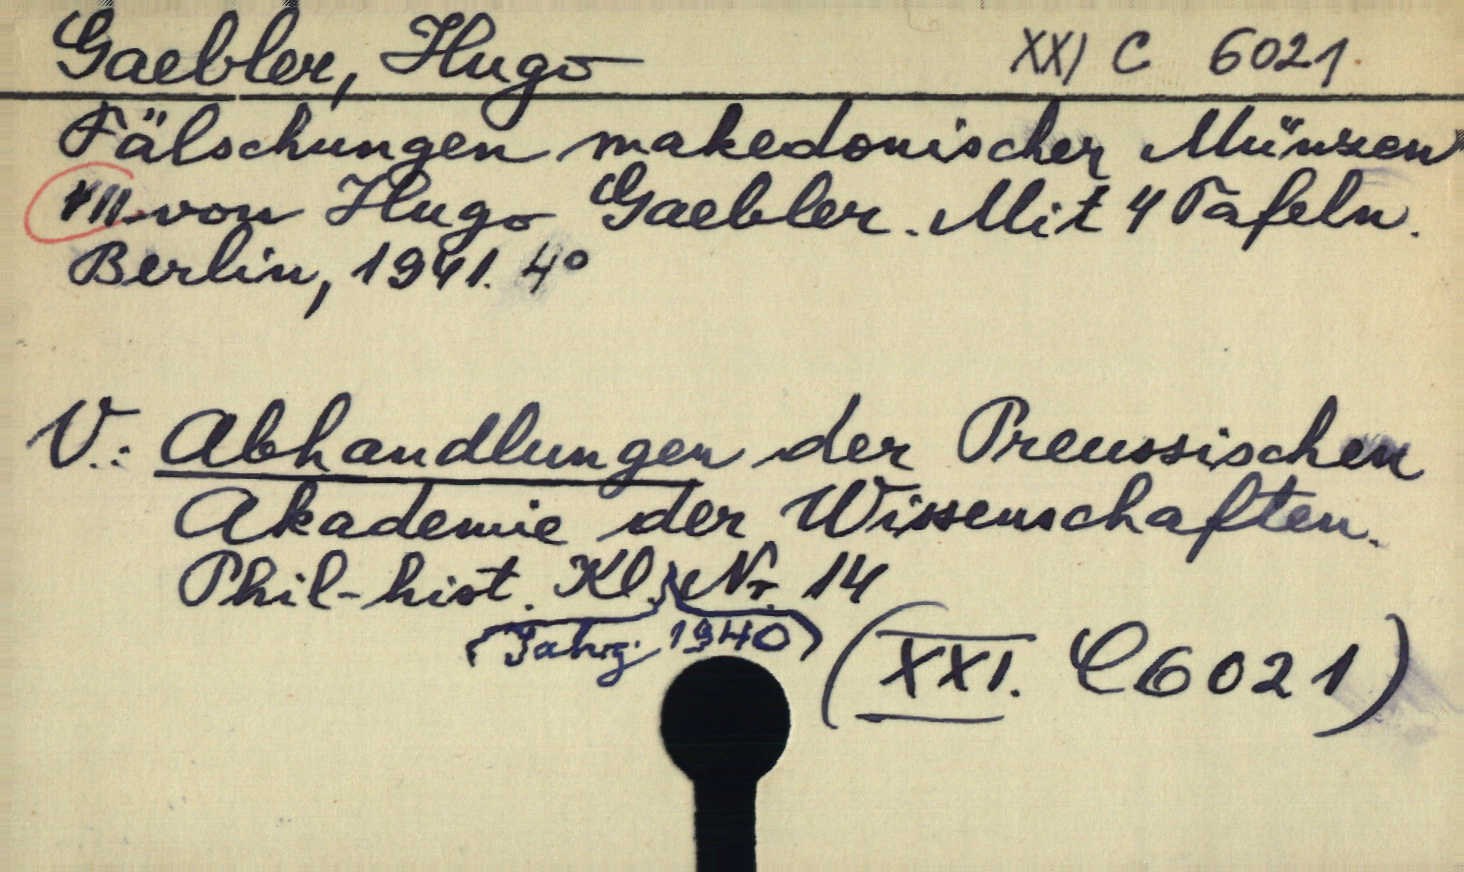 Gaebler, Hugo XXI C 6021
Fälschungen makedonischer Münzen
VII von Hugo Gaebler. Mit 4 Tafeln.
Berlin, 1941. 4°
V.: Abhandlungen der Preussischen
Akademie der Wissenschaften.
Phil-hist. Kl. Nr. 14
Jahrg. 1940
(XXI. C 6021)